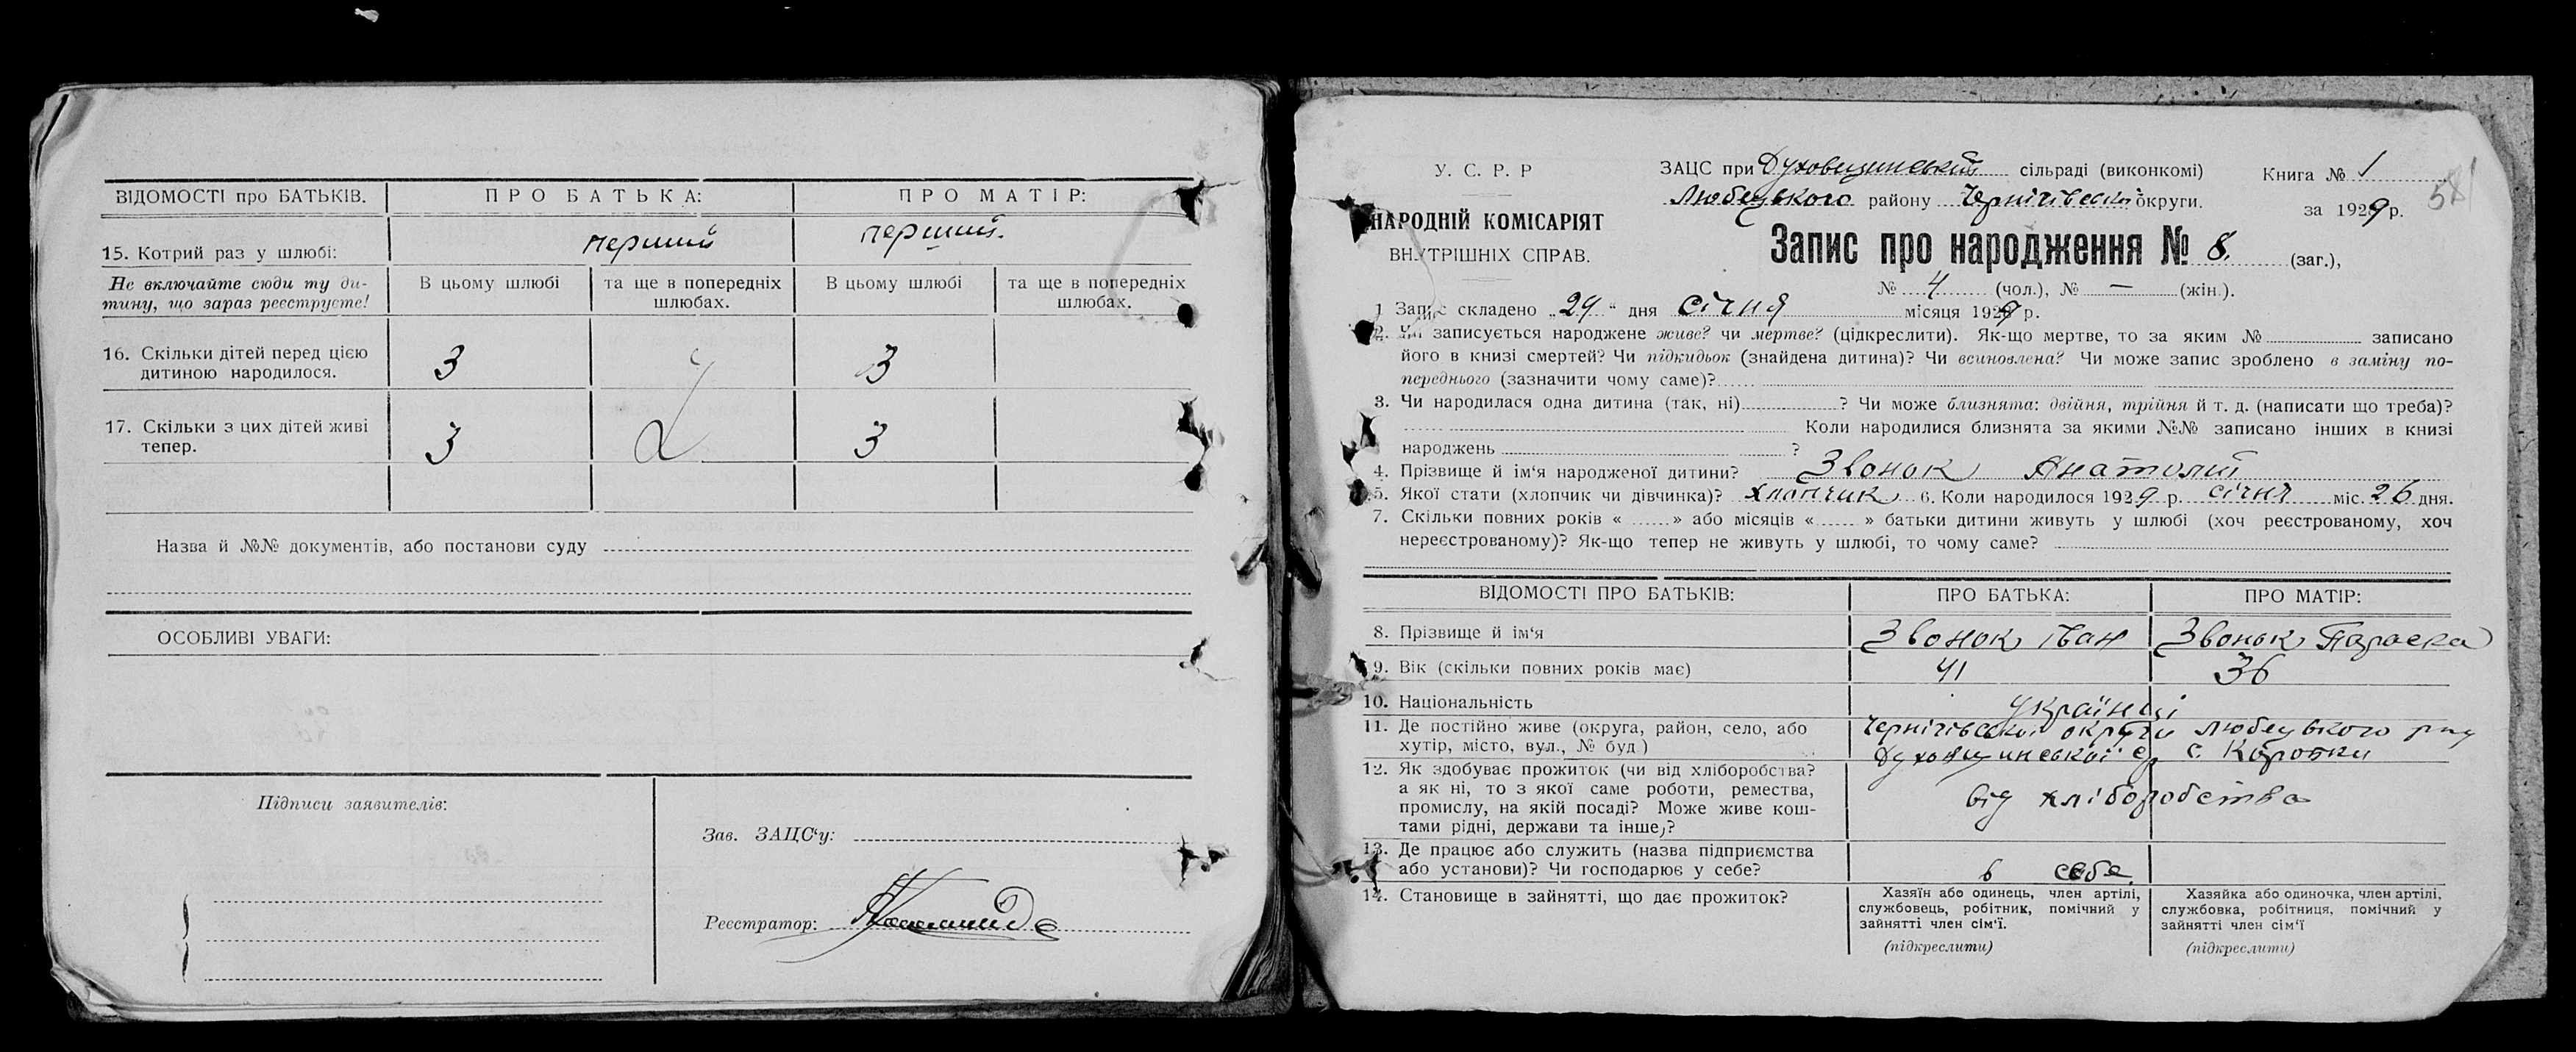 ВІДОМОСТІ про БАТЬКІВ. ПРО БАТЬКА: ПРО МАТІР:
15. Котрий раз у шлюбі: перший перший.
Не включайте сюди ту ди-
тину, що зараз реєструєте!
В цьому шлюбі
та ще в попередніх
шлюбах.
В цьому шлюбі
та ще в попередніх
шлюбах.
16. Скільки дітей перед цією
дитиною народилося. 3 3
17. Скільки з цих дітей живі
тепер. 3 3
Назва й №№ документів, або постанови суду
ОСОБЛИВІ УВАГИ:
Підписи заявителів:
Зав. ЗАЦС‘у:
Реєстратор:
У. С. Р. Р
НАРОДНІЙ КОМІСАРІЯТ
ВНУТРІШНІХ СПРАВ.
ЗАЦС при Духовщинській сільраді (виконкомі)
Любецького району Чернігівської округи.
Книга № 1
за 1929 р.
581
Запис про народження № 8. (заг.),
№ 4 (чол.), № — (жін.).
1 Запис складено „29“ дня січня місяця 1929 р.
2. Чи записується народжене живе? чи мертве? (підкреслити). Як-що мертве, то за яким № записано
його в книзі смертей? Чи підкидьок (знайдена дитина)? Чи всиновлена? Чи може запис зроблено в заміну по-
переднього (зазначити чому саме)?
3. Чи народилася одна дитина (так, ні) ? Чи може близнята: двійня, трійня й т. д. (написати що треба)?
Коли народилися близнята за якими №№ записано інших в книзі
народжень ?
4. Прізвище й ім‘я народженої дитини? Звонок Анатолій
5. Якої стати (хлопчик чи дівчинка)? хлопчик 6. Коли народилося 1929 р. січня міс. 26 дня.
7. Скільки повних років « » або місяців « » батьки дитини живуть у шлюбі (хоч реєстрованому, хоч
нереєстрованому)? Як-що тепер не живуть у шлюбі, то чому саме?
ВІДОМОСТІ ПРО БАТЬКІВ: ПРО БАТЬКА: ПРО МАТІР:
8. Прізвище й ім‘я Звонок Іван Звонок Параска
9. Вік (скільки повних років має) 41 36
10. Національність українці
11. Де постійно живе (округа, район, село, або
хутір, місто, вул., № буд)
Чернігівської округи Любецького р-ну
Духовщинської с/р с. Коробки
12. Як здобуває прожиток (чи від хліборобства?
а як ні, то з якої саме роботи, ремества,
промислу, на якій посаді? Може живе кош-
тами рідні, держави та інше)?
від хліборобства
13. Де працює або служить (назва підприємства
або установи)? Чи господарює у себе?
в себе
14. Становище в зайнятті, що дає прожиток?
Хазяїн або одинець, член артілі,
службовець, робітник, помічний у
зайнятті член сім‘ї.
(підкреслити)
Хазяйка або одиночка, член артілі,
службовка, робітниця, помічний у
зайнятті член сім‘ї
(підкреслити)